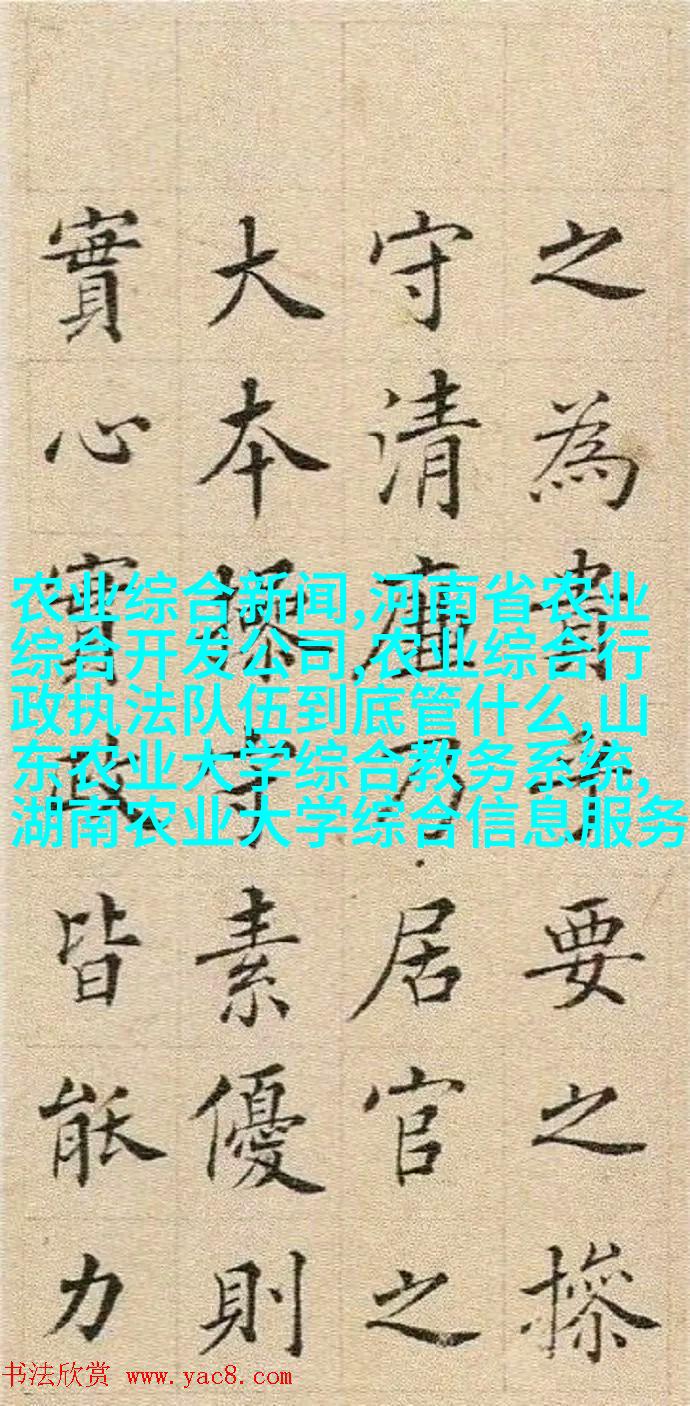 之為貴要之操
守清廉乃居官之
大本操守素優則
實心實政皆能力
农业综合新闻,河南省农业
综合开发公司,农业综合行
政执法队伍到底管什么,山
东农业大学综合教务系统,
湖南农业大学综合信息服务
书法欣赏 www.yac8.com